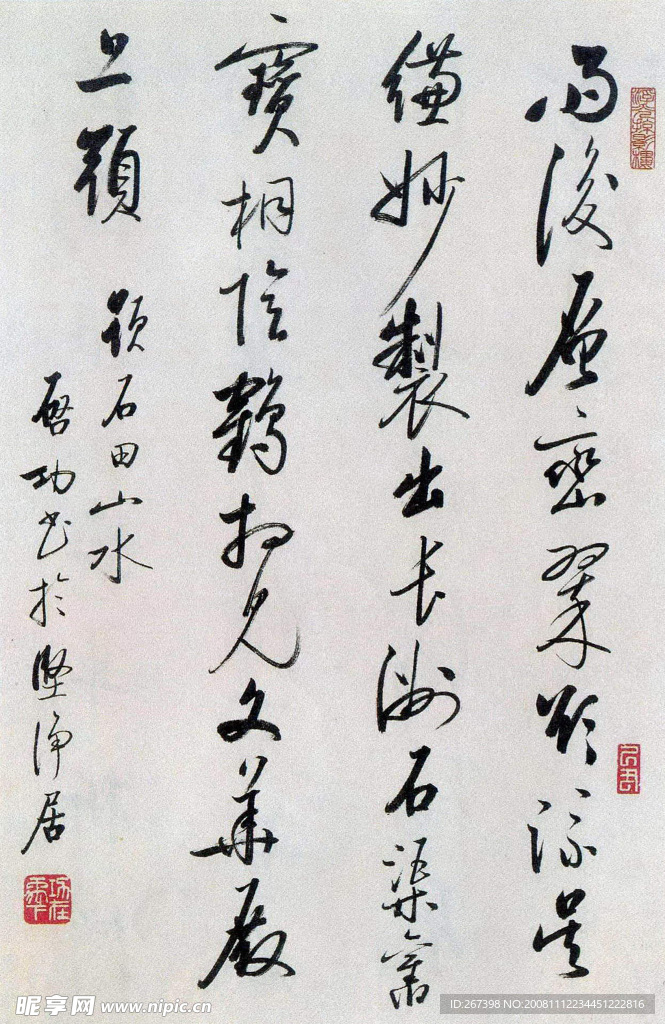 雨後層巒翠欲流吳
縑妙製出長洲石渠舊
寶相陰鶴相見文華殿
上頭
題石田山水
啟功書於堅淨居
昵享网 www.nipic.cn
ID:267398 NO:20081112234451222816